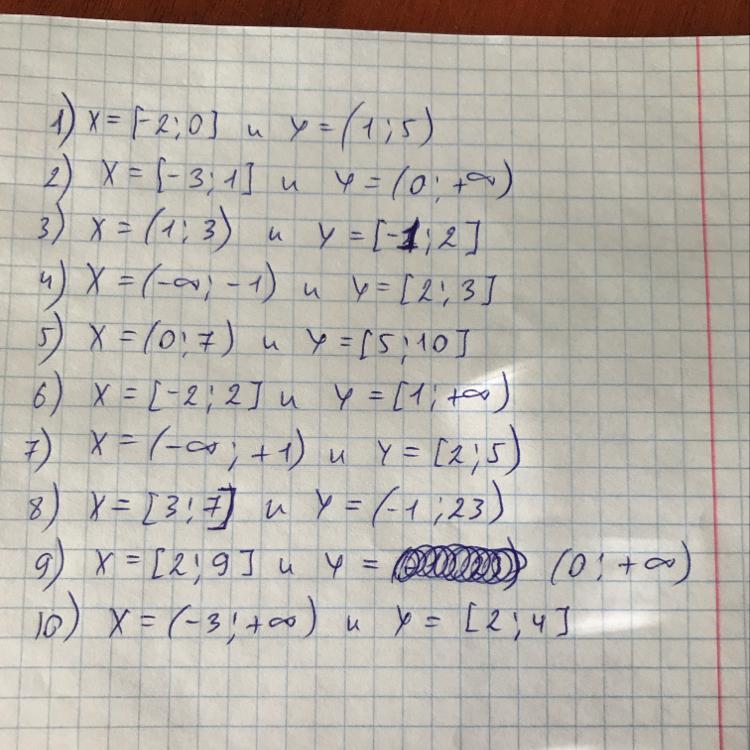 1) X = [-2; 0] и Y = (1; 5)
2) X = [-3; 1] и Y = (0; +∞)
3) X = (1; 3) и Y = [-1; 2]
4) X = (-∞; -1) и Y = [2; 3]
5) X = (0; 7) и Y = [5; 10]
6) X = [-2; 2] и Y = [1; +∞)
7) X = (-∞; +1) и Y = [2; 5)
8) X = [3; 7] и Y = (-1; 23)
9) X = [2; 9] и Y = (0; +∞)
10) X = (-3; +∞) и Y = [2; 4]